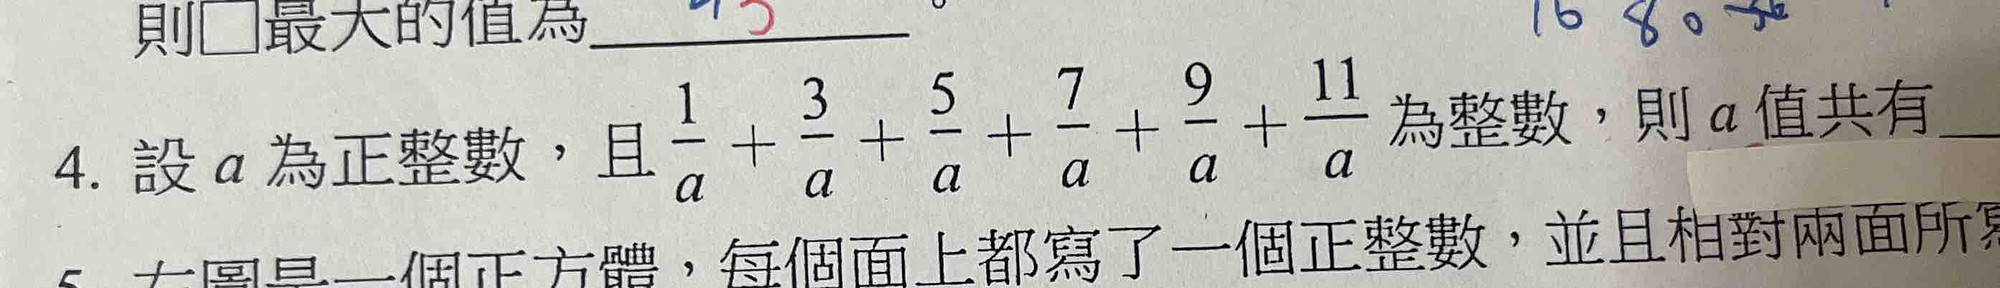 則□最大的值為 45 。
16 80
4. 設 a 為正整數，且 1/a + 3/a + 5/a + 7/a + 9/a + 11/a 為整數，則 a 值共有
5. 右圖是一個正方體，每個面上都寫了一個正整數，並且相對兩面所寫